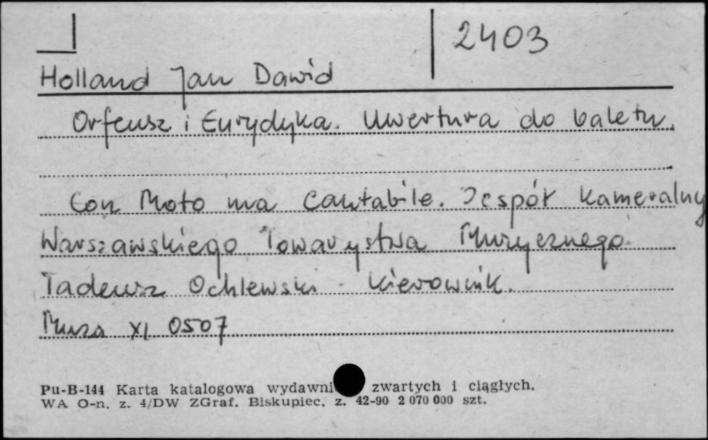 2403
Holland Jan Dawid
Orfeusz i Eurydyka. Uwertura do baletu.
Con Moto ma Cantabile. Zespół Kameralny
Warszawskiego Towarzystwa Muzycznego
Tadeusz Ochlewski - kierownik.
Muza XL 0507
Pu-B-144 Karta katalogowa wydawni zwartych i ciągłych.
WA O-n. z. 4/DW ZGraf. Biskupiec. z. 42-90 2 070 000 szt.